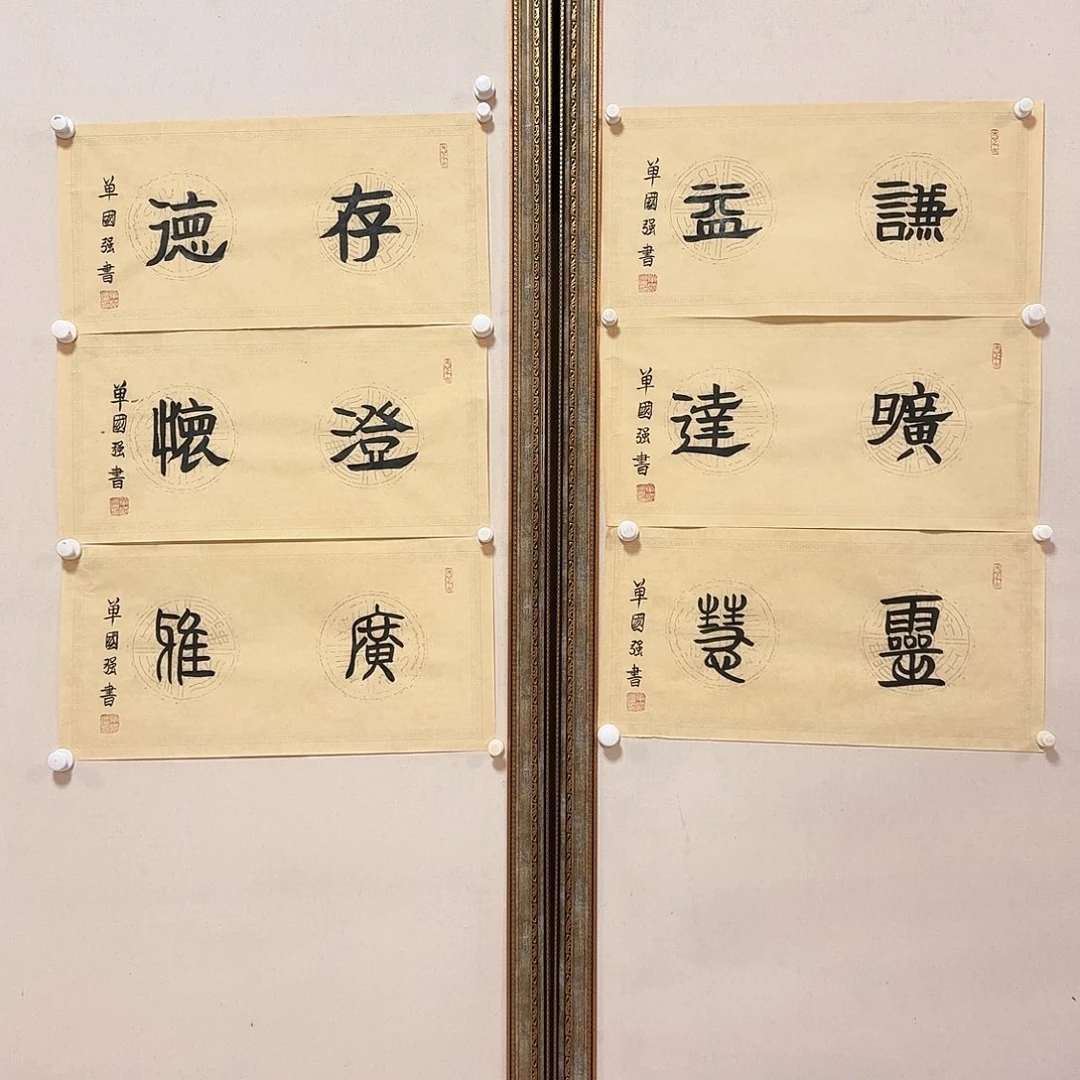 謙益
单國强書
曠達
单國强書
靈慧
单國强書
存德
单國强書
澄懷
单國强書
廣雅
单國强書